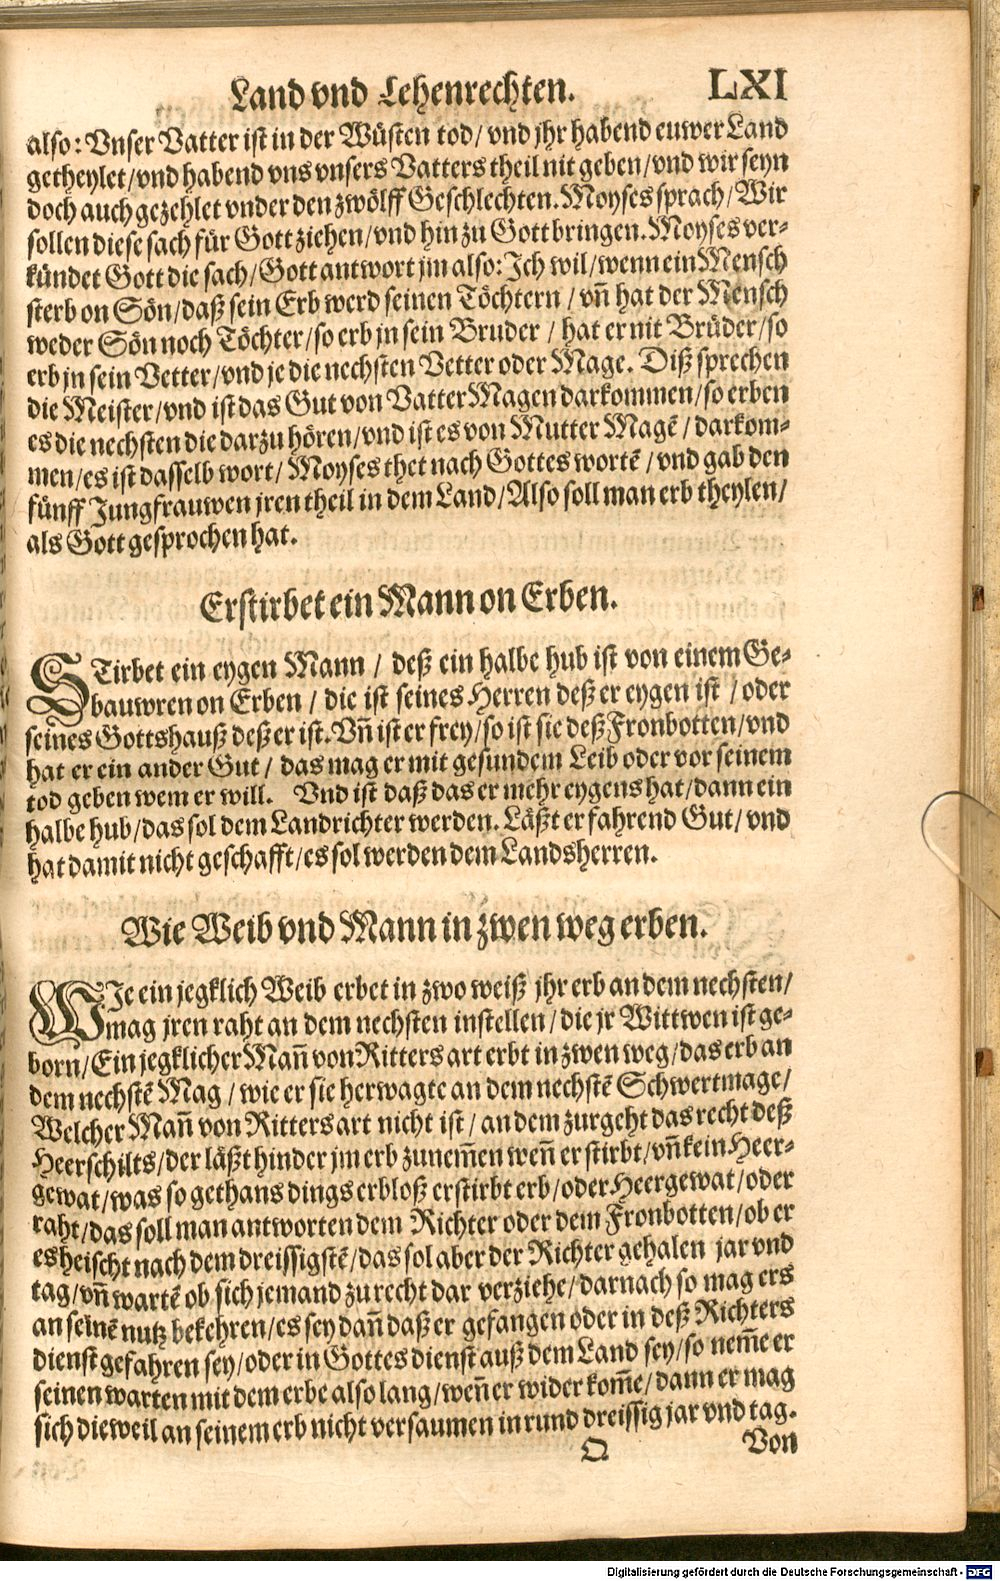 Land vnd Lehenrechten. LXI
also: Vnser Vatter ist in der Wüsten tod/ vnd jhr habend euwer Land
getheylet/vnd habend vns vnsers Vatters theil nit geben/vnd wir seyn
doch auch gezehlet vnder den zwölff Geschlechten. Moyses sprach/ Wir
sollen diese sach für Gott ziehen/vnd hin zu Gott bringen. Moyses ver-
kündet Gott die sach/ Gott antwort jm also: Ich wil/ wenn ein Mensch
sterb on Sön/ daß sein Erb werd seinen Töchtern / vñ hat der Mensch
weder Sön noch Töchter/ so erb jn sein Bruder / hat er nit Brüder/ so
erb jn sein Vetter/ vnd je die nechsten Vetter oder Mage. Diß sprechen
die Meister/ vnd ist das Gut von Vatter Magen darkommen/ so erben
es die nechsten die darzu hören/ vnd ist es von Mutter Magẽ / darkom-
men/ es ist dasselb wort/ Moyses thet nach Gottes wortẽ / vnd gab den
fünff Jungfrauwen jren theil in dem Land/ Also soll man erb theylen/
als Gott gesprochen hat.
Erstirbet ein Mann on Erben.
STirbet ein eygen Mann / deß ein halbe hub ist von einem Ge-
bauwren on Erben / die ist seines Herren deß er eygen ist / oder
seines Gottshauß deß er ist. Vñ ist er frey/ so ist sie deß Fronbotten/ vnd
hat er ein ander Gut / das mag er mit gesundem Leib oder vor seinem
tod geben wem er will. Vnd ist daß das er mehr eygens hat/ dann ein
halbe hub/ das sol dem Landrichter werden. Läßt er fahrend Gut/ vnd
hat damit nicht geschafft/ es sol werden dem Landsherren.
Wie Weib vnd Mann in zwen weg erben.
WIe ein jegklich Weib erbet in zwo weiß jhr erb an dem nechsten/
mag jren raht an dem nechsten instellen / die jr Wittwen ist ge-
born/ Ein jegklicher Mañ von Ritters art erbt in zwen weg/ das erb an
dem nechstẽ Mag / wie er sie herwagte an dem nechstẽ Schwertmage/
Welcher Mañ von Ritters art nicht ist / an dem zurgeht das recht deß
Heerschilts/ der läßt hinder jm erb zunem̃en weñ er stirbt/ vñ kein Heer-
gewat/ was so gethans dings erbloß erstirbt erb/ oder Heergewat/ oder
raht/ das soll man antworten dem Richter oder dem Fronbotten/ ob er
es heischt nach dem dreissigstẽ/ das sol aber der Richter gehalen jar vnd
tag/ vñ wartẽ ob sich jemand zu recht dar verziehe/ darnach so mag ers
an seinẽ nutz bekehren/ es sey dañ daß er gefangen oder in deß Richters
dienst gefahren sey/ oder in Gottes dienst auß dem Land sey/ so nem̃e er
seinen warten mit dem erbe also lang/ weñ er wider kom̃e/ dann er mag
sich dieweil an seinem erb nicht versaumen in rund dreissig jar vnd tag.
Q Von
Digitalisierung gefördert durch die Deutsche Forschungsgemeinschaft - DFG